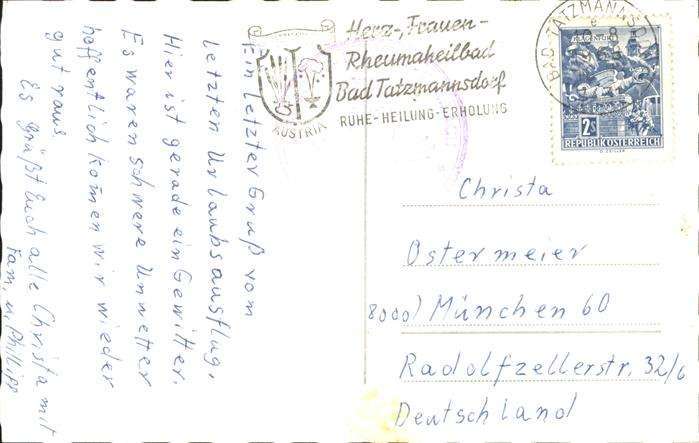 Ein letzter Gruß vom
letzten Urlaubsausflug.
Hier ist gerade ein Gewitter.
Es waren schwere Unwetter
hoffentlich komen wir wieder
gut raus.
Es grüßt Euch alle Christa mit
Fam. u. Phillipp
AUSTRIA
Herz-, Frauen-
Rheumaheilbad
Bad Tatzmannsdorf
RUHE-HEILUNG-ERHOLUNG
BAD TATZMANNSDORF
2S
REPUBLIK ÖSTERREICH
Christa
Ostermeier
8000 München 60
Radolfzellerstr. 32/6
Deutschland